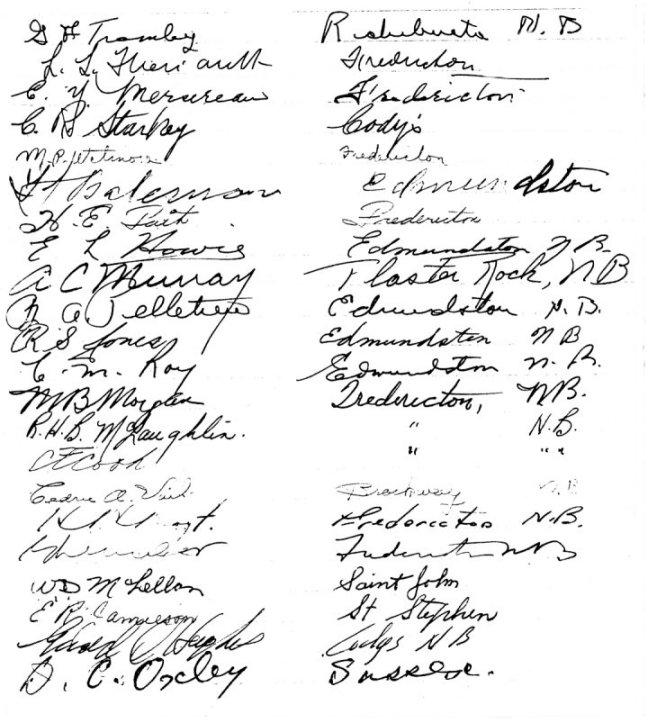 G F Trombley Richibucto N. B
L. L. Theriault Fredericton
E. Y. Mersereau Fredericton
C. R. Starkey Codys
M. P. Fredericton
Bateman Edmundston
H. E. Tait Fredericton
E L Howie Edmundston N B.
A C Murray Plaster Rock, N B
R A. Pelletier Edmundston N. B.
R. S. Jones Edmundston N B
C. M. Roy Edmundston N. B.
M B Morgan Fredericton, N.B.
R. H. B. McLaughlin. " N.B.
C F Cook " " "
Cedric A. Brockway N B
Fredericton N.B.
Fredericton N B
W D McLellan Saint John
E R Jamieson St Stephen
Gerald O Hughes Codys N B
D. C. Oxley Sussex.